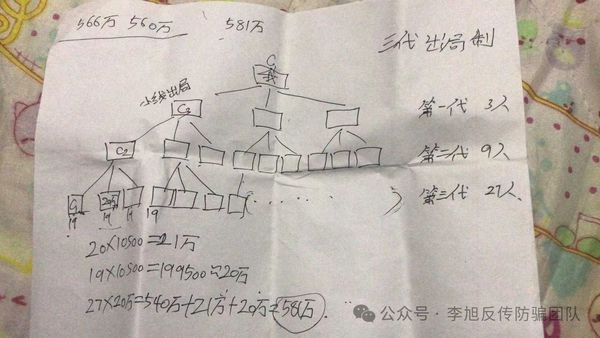 566万 560万 581万
三代出局制
C1
我
小线出局
C3
第一代 3人
C2
第二代 9人
C1
第三代 27人
19 19 19 19
20×10500=21万
19×10500=199500≈20万
27×20万=540万+21万+20万=581万
公众号·李旭反传防骗团队